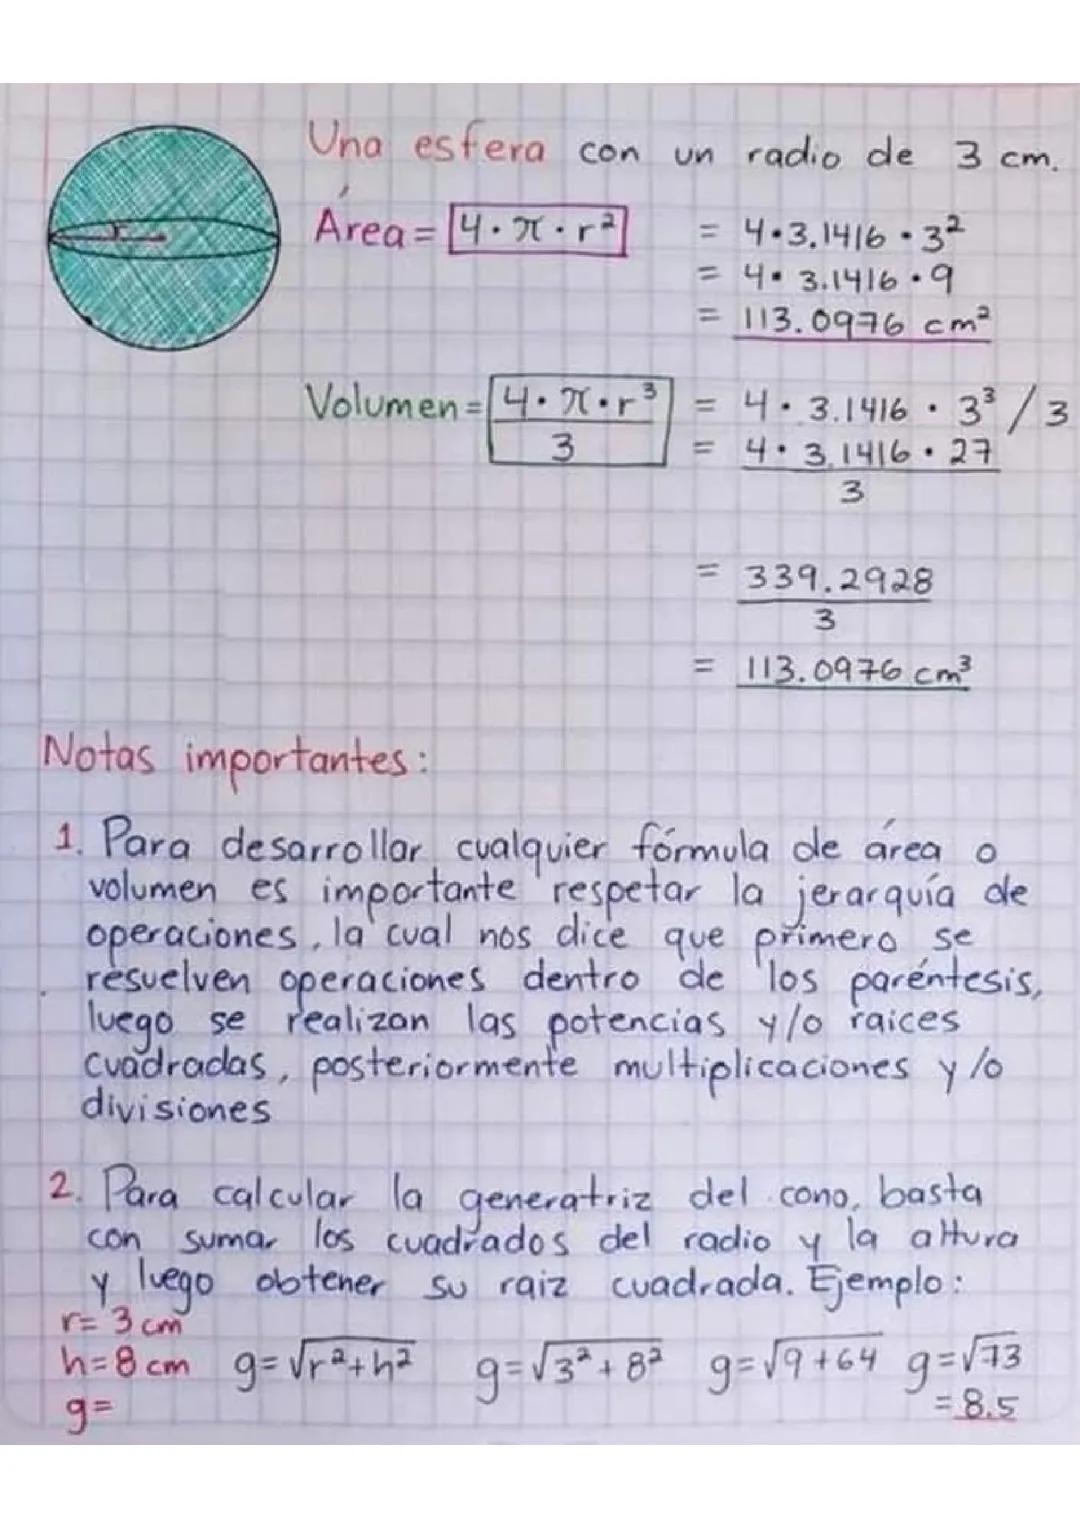 Una esfera con un radio de 3 cm.
Área = 4·π·r² = 4·3.1416·3²
= 4·3.1416·9
= 113.0976 cm²
r
Volumen = 4·π·r³ / 3 = 4·3.1416·3³/3
= 4·3.1416·27
3
= 339.2928
3
= 113.0976 cm³
Notas importantes:
1. Para desarrollar cualquier fórmula de área o
volumen es importante respetar la jerarquía de
operaciones, la cual nos dice que primero se
resuelven operaciones dentro de los paréntesis,
luego se realizan las potencias y/o raices
cuadradas, posteriormente multiplicaciones y/o
divisiones
2. Para calcular la generatriz del cono, basta
con sumar los cuadrados del radio y la altura
y luego obtener su raiz cuadrada. Ejemplo:
r= 3 cm
h=8 cm g=√r²+h² g=√3²+8² g=√9+64 g=√73
g= =8.5